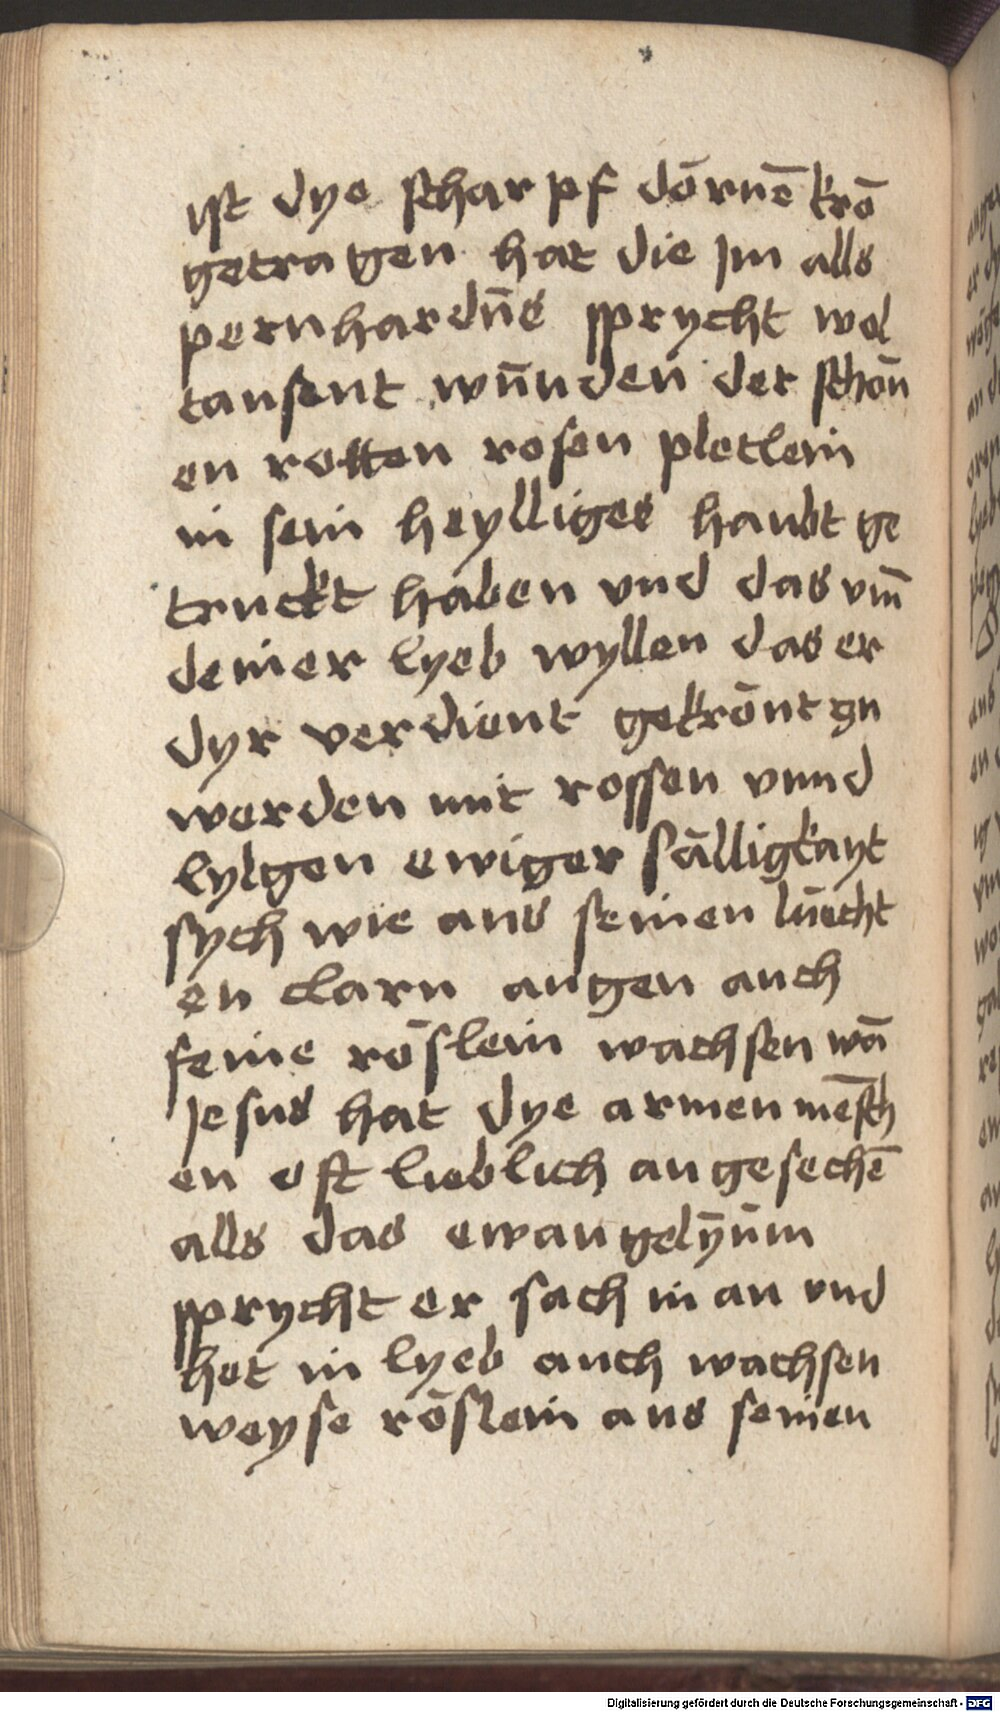 ist dye scharpf dōrnē krō
getragen hat die Im alls
pernhardūs sprycht wol
tausent wūnden der schōn
en rotten rosen pletlein
in sein heylliges haubt ge
truckt haben vnd das vm̄
deiner lyeb wyllen das er
dyr verdient gekrōnt zu
werden mit rossen vnnd
lylgen ewiger sālligkayt
sych wie aus seinen lūecht
en clarn augen auch
feine rōslein wachsen wā
Jesus hat dye armen mēsch
en oft lieblich angesechē
alls das ewangelȳūm
sprycht er sach in an vnd
het in lyeb auch wachsen
weyse rōslein aus seinen
Digitalisierung gefördert durch die Deutsche Forschungsgemeinschaft - DFG